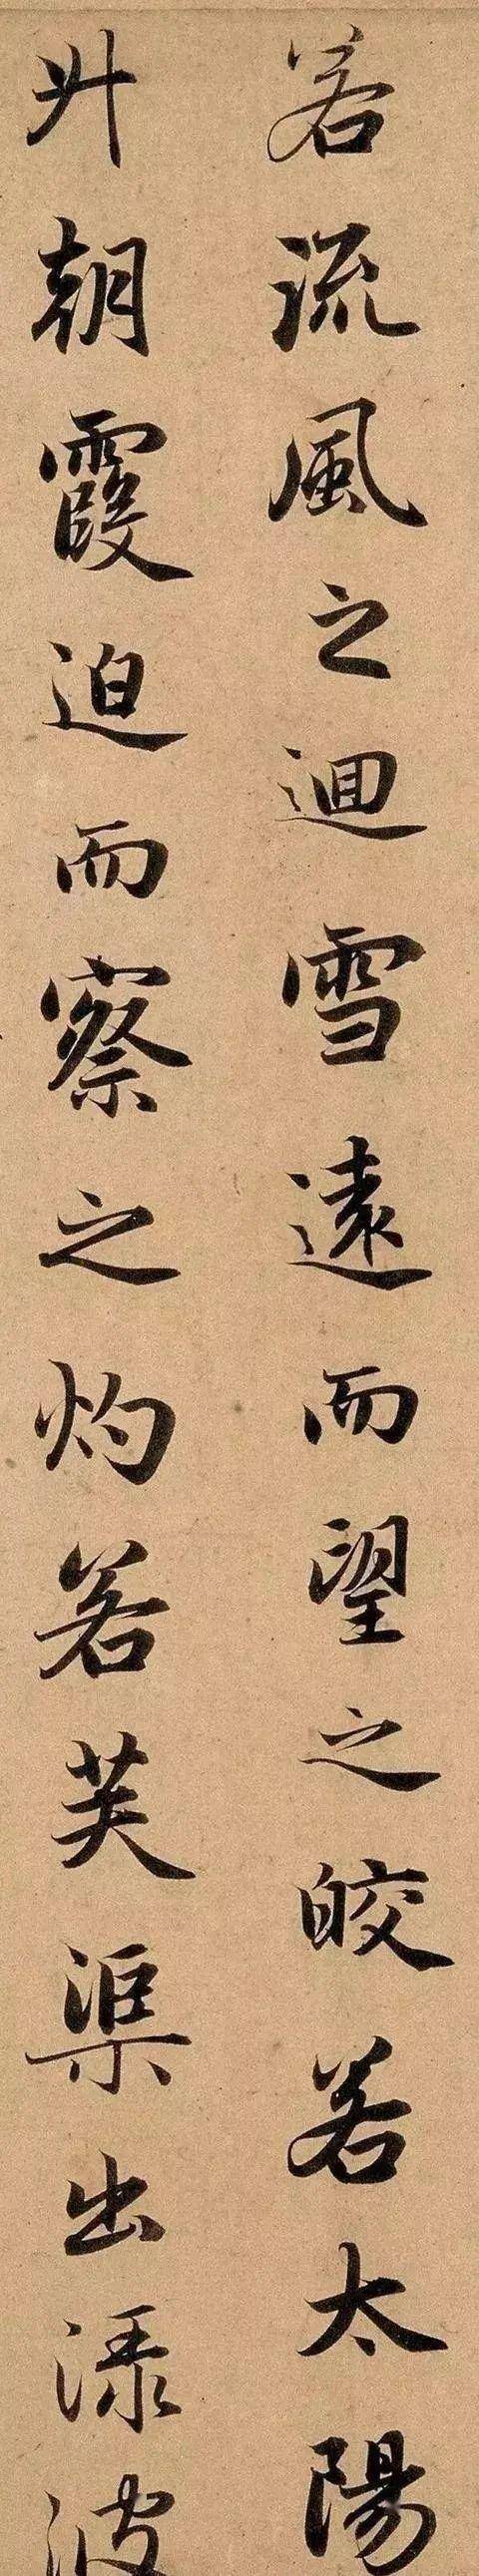 若流風之迴雪遠而望之皎若太陽
升朝霞迫而察之灼若芙渠出渌波